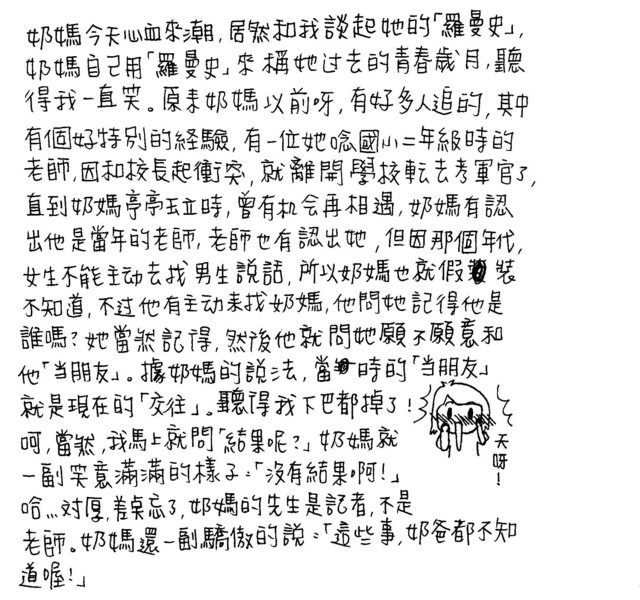 奶媽今天心血來潮,居然和我談起她的「羅曼史」,
奶媽自己用「羅曼史」來稱她过去的青春歲月,聽
得我一直笑。原來奶媽以前呀,有好多人追的,其中
有個好特別的経驗,有一位她唸國小二年級時的
老師,因和校長起衝突,就離開學校転去考軍官了,
直到奶媽亭亭玉立時,曾有机会再相遇,奶媽有認
出他是當年的老師,老師也有認出她,但因那個年代,
女生不能主动去找男生說話,所以奶媽也就假裝
不知道,不过他有主动来找奶媽,他問她記得他是
誰嗎?她當然記得,然後他就問她願不願意和
他「当朋友」。據奶媽的說法,當時的「当朋友」
就是現在的「交往」。聽得我下巴都掉了!
呵,當然,我馬上就問「結果呢?」奶媽就
一副笑意滿滿的樣子:「沒有結果啊!」
天呀!
哈...对厚,差桌忘了,奶媽的先生是記者,不是
老師。奶媽還一副驕傲的說:「這些事,奶爸都不知
道喔!」